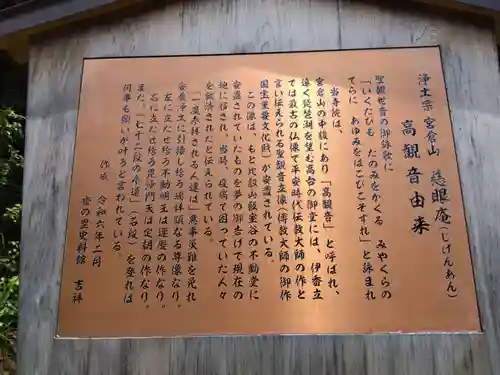 浄土宗 宮倉山 慈眼庵(じげんあん)
高観音由来
聖観世音の御詠歌に
「いくたびも たのみをかくる みやくらの
てらに あゆみをはこびこそすれ」と詠まれ
当寺院は、
宮倉山の中腹にあり「高観音」と呼ばれ、
遠く琵琶湖を望む高台の御堂には、伊香立
では最古の仏像で平安時代伝教大師の作と
言い伝えられる聖観音立像(伝教大師の御作
国重要文化財)が安置されている。
この像は、もと比叡山飯室谷の不動堂に
安置されていたものを夢の御告げで現在の
地に移され、当時、疫病で困っていた人々
を救済されたと伝えられている。
「一度参拝される人達は、悪事災難を免れ
安養浄土に引接し給う端詳類なる尊像なり。
左に立たせ給う不動明王は運慶の作なり。
右に立たせ給う毘沙門天は定朝の作なり。
また、「七十二段の参道」(石段)を登れば
何事も願いがかなうと言われている。
作成 令和六年二月
香の里史料館 吉祥